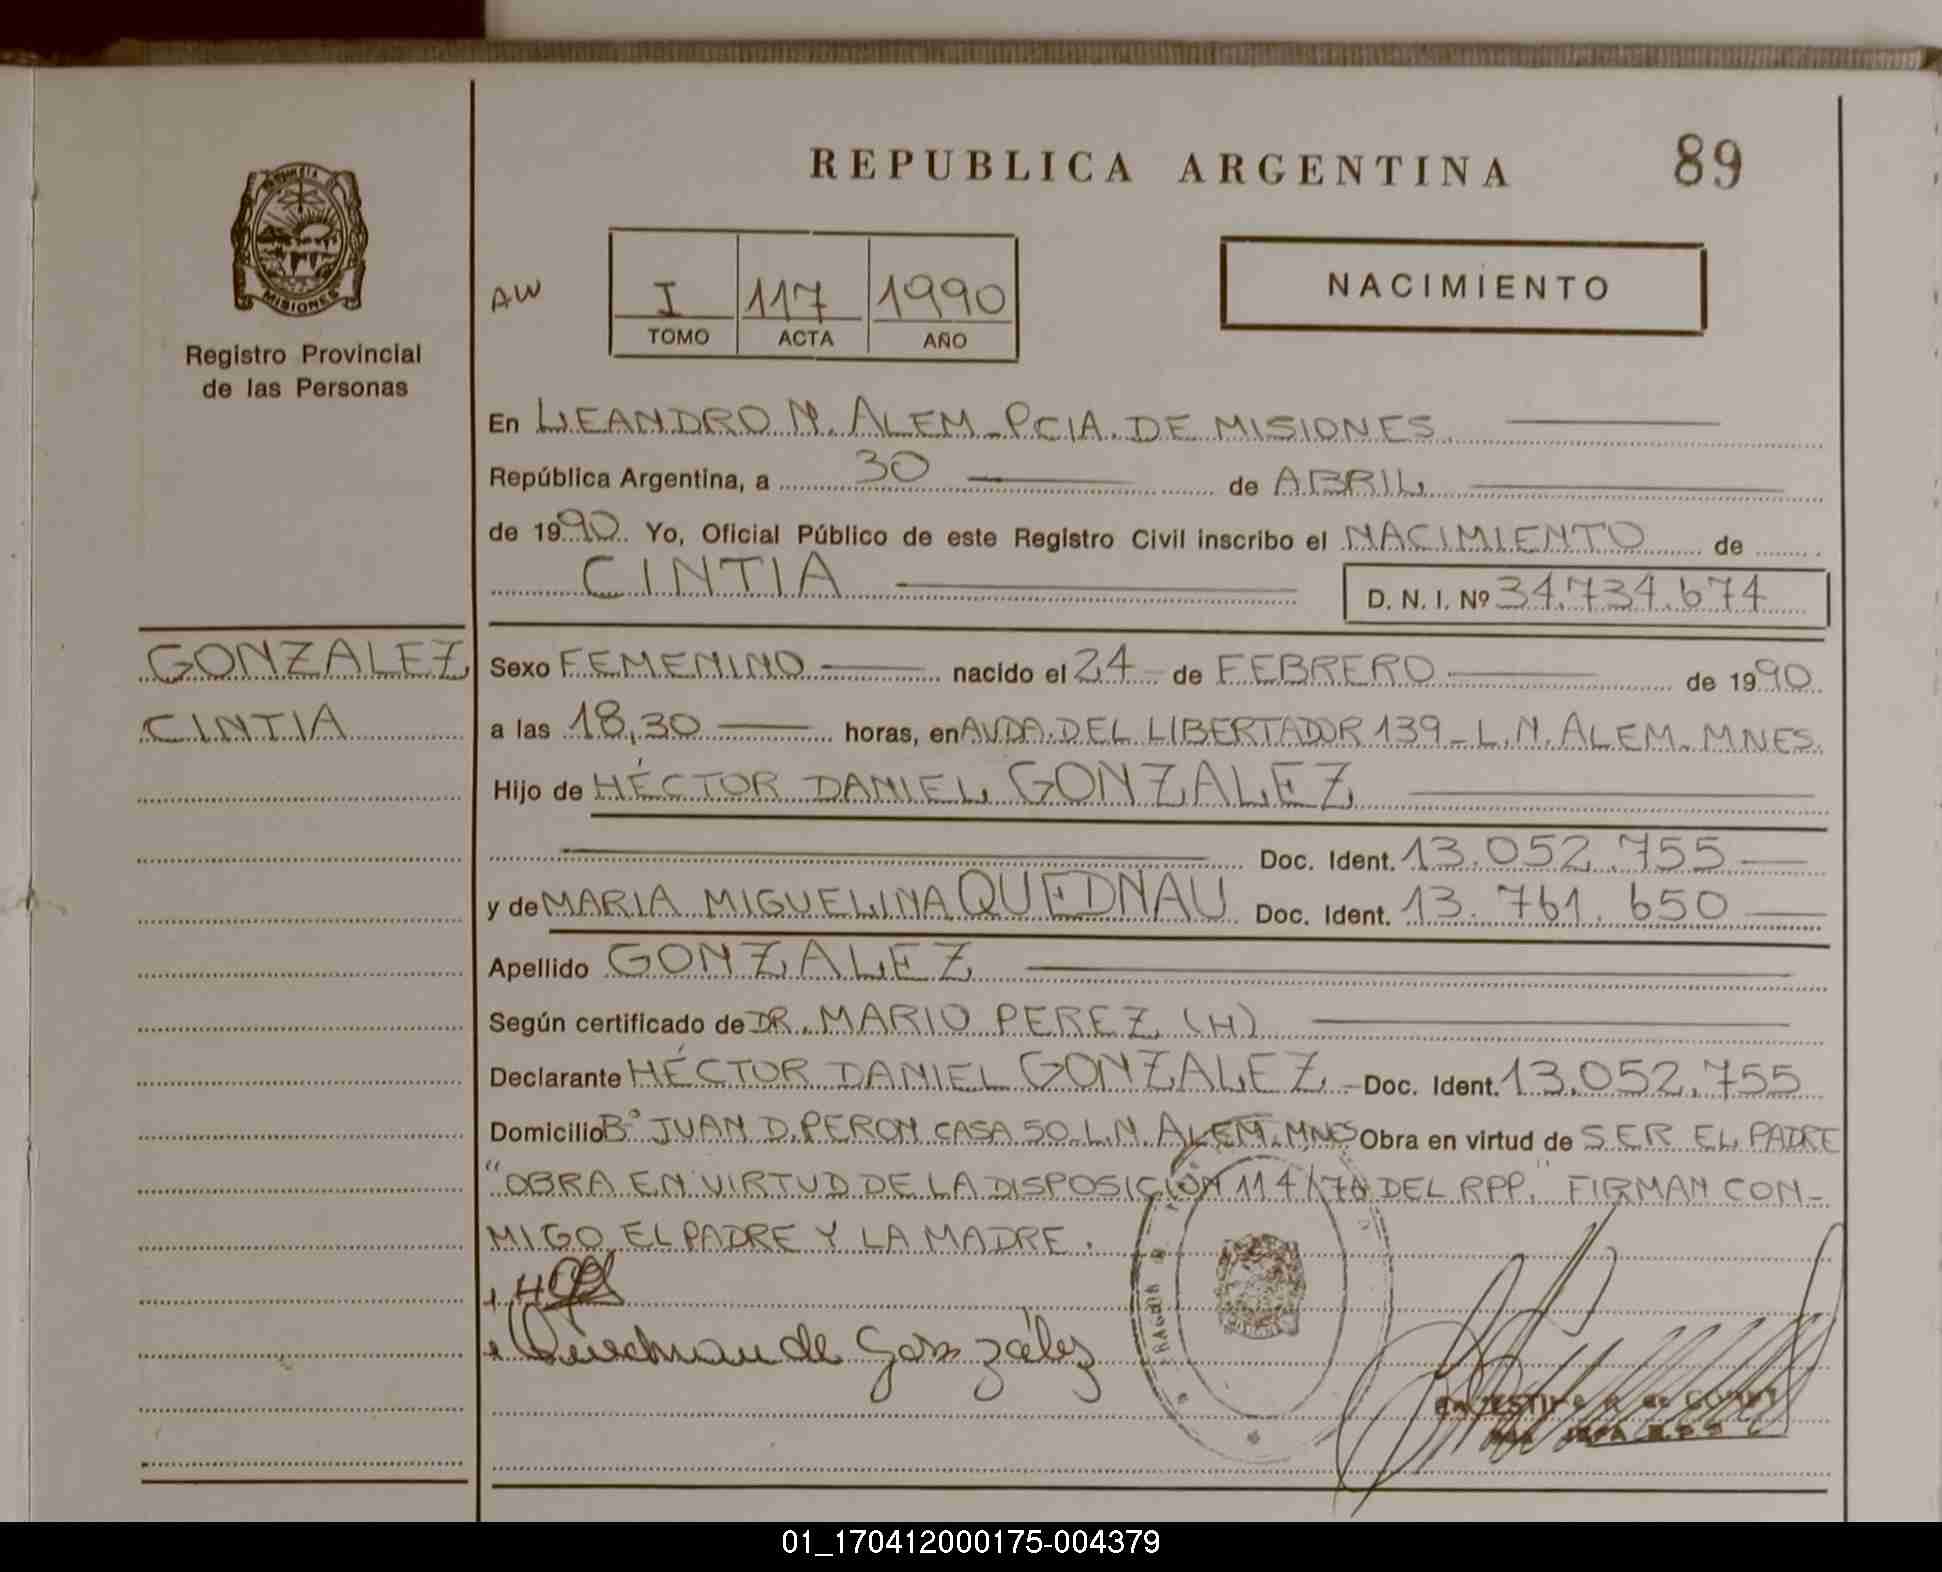 REPUBLICA ARGENTINA
89
PROVINCIA
MISIONES
Registro Provincial
de las Personas
AW
I 117 1990
TOMO ACTA AÑO
NACIMIENTO
En LEANDRO N. ALEM - PCIA. DE MISIONES.
República Argentina, a 30 de ABRIL
de 1990 Yo, Oficial Público de este Registro Civil inscribo el NACIMIENTO de
CINTIA D. N. I. Nº 34.734.674
GONZALEZ
CINTIA
Sexo FEMENINO nacido el 24 de FEBRERO de 1990
a las 18,30 horas, en AVDA. DEL LIBERTADOR 139 - L.N. ALEM - MNES.
Hijo de HÉCTOR DANIEL GONZALEZ
Doc. Ident. 13.052.755
y de MARIA MIGUELINA QUEDNAU Doc. Ident. 13.761.650
Apellido GONZALEZ
Según certificado de DR. MARIO PEREZ (H)
Declarante HÉCTOR DANIEL GONZALEZ - Doc. Ident. 13.052.755
Domicilio Bº JUAN D. PERON CASA 50 - L.N. ALEM - MNES Obra en virtud de SER EL PADRE
"OBRA EN VIRTUD DE LA DISPOSICIÓN 114/76 DEL RPP." FIRMAN CON-
MIGO EL PADRE Y LA MADRE.
de González
01_170412000175-004379